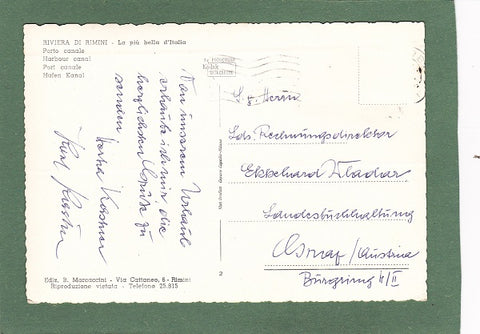 RIVIERA DI RIMINI - La più bella d'Italia
Porto canale
Harbour canal
Port canale
Hafen Kanal
Von unserem Urlaub
erlaube ich mir die
herzlichsten Grüße zu
senden
Karl
S. g. Herrn
Lds. Rechnungsdirektor
Ekkehard
Landesbuchhaltung
Graz/Austria
Burgring 4/II
Ediz. B. Macoccini - Via Cattaneo, 6 - Rimini
Riproduzione vietata - Telefono 25.815
2